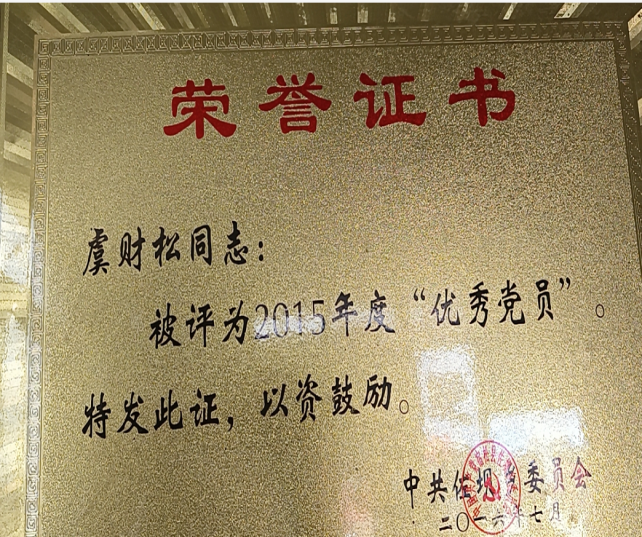 荣誉证书
虞财松同志：
被评为2015年度“优秀党员”。
特发此证，以资鼓励。
中共佐坝党委员会
二〇一六年七月